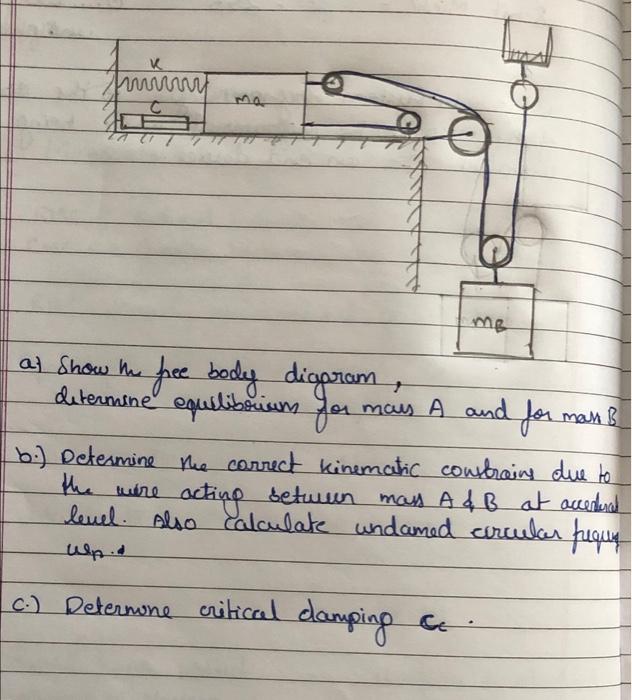 K
ma
C
mB
a) Show the free body digaram,
determine equilibrium for mass A and for mass B
b.) Determine the correct kinematic constrains due to
the wire acting between mass A & B at
level. Also calculate undamed circular
c.) Determone critical damping Cc.